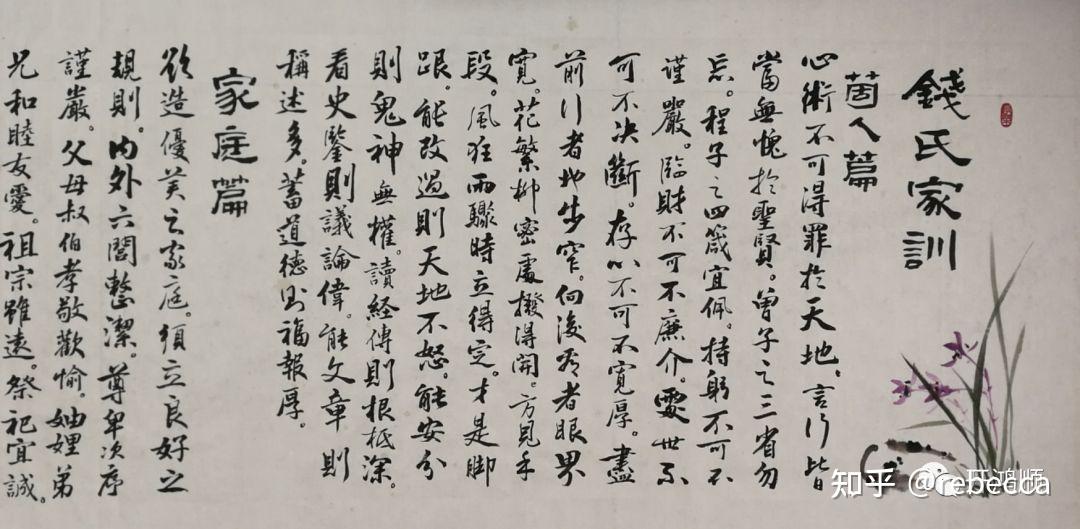 錢氏家訓
箇人篇
心術不可得罪於天地。言行皆
當無愧於聖賢。曾子之三省勿
忘。程子之四箴宜佩。持躬不可不
謹嚴。臨財不可不廉介。處世不
可不决斷。存心不可不寬厚。盡
前行者地步窄。向後看者眼界
寬。花繁柳密處撥得開。方見手
段。風狂雨驟時立得定。才是脚
跟。能改過則天地不怒。能安分
則鬼神無權。讀經傳則根柢深。
看史鑒則議論偉。能文章則
稱述多。蓄道德則福報厚。
家庭篇
欲造優美之家庭。須立良好之
規則。內外六閭整潔。尊卑次序
謹嚴。父母叔伯孝敬歡愉。妯娌弟
兄和睦友愛。祖宗雖遠。祭祀宜誠。
知乎 @rebecca